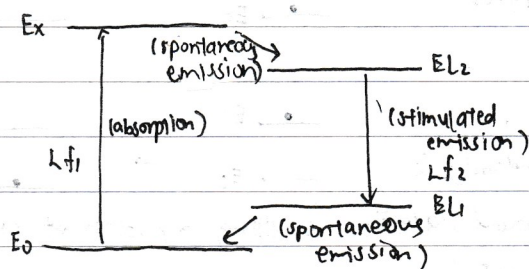 Ex
(spontaneous
emission)
EL2
(absorption)
(stimulated
emission)
Lf1
Lf2
EL1
E0
(spontaneous
emission)